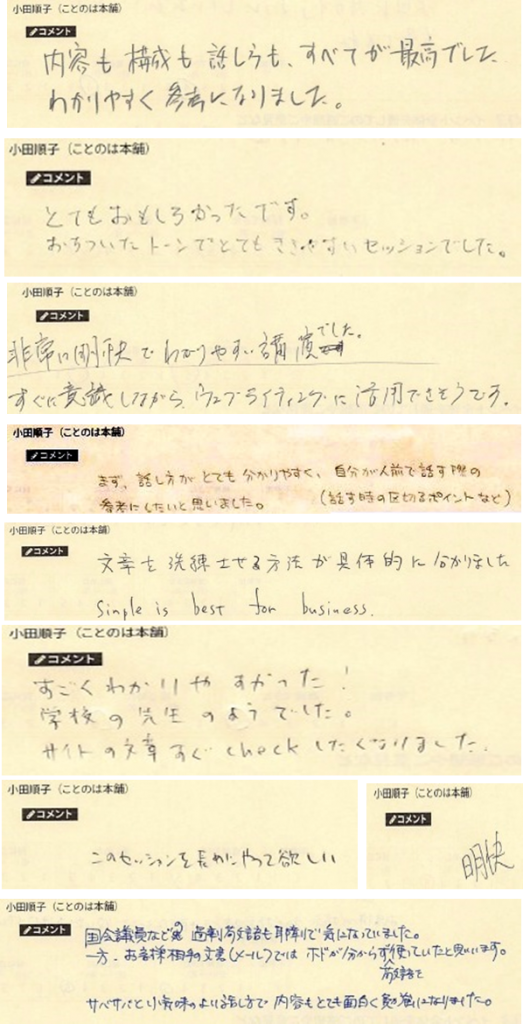 小田順子(ことのは本舗)
コメント
内容も構成も話しうも、すべてが最高でした
わかりやすく参考になりました。
小田順子(ことのは本舗)
コメント
とてもおもしろかったです。
おちついたトーンでとてもききやすいセッションでした。
小田順子(ことのは本舗)
コメント
非常に明快でわかりやすい講演でした。
すぐに意識しながら、ウェブライティングに活用できそうです。
小田順子(ことのは本舗)
コメント
まず、話し方がとても分かりやすく、自分が人前で話す際の
参考にしたいと思いました。(話す時の区切るポイントなど)
小田順子(ことのは本舗)
コメント
文章を洗練させる方法が具体的に分かりました
Simple is best for business.
小田順子(ことのは本舗)
コメント
すごくわかりやすかった!
学校の先生のようでした。
サイトの文章すぐcheckしたくなりました.
小田順子(ことのは本舗)
コメント
このセッションを長めにやって欲しい
小田順子(ことのは本舗)
コメント
明快
小田順子(ことのは本舗)
コメント
国会議員などの過剰敬語も耳障りで気になっていました。
一方、お客様相手の文書(メール)ではホドが分からず敬語を使っていたと思います。
サバサバと小気味のよい話し方で内容もとても面白く勉強になりました。